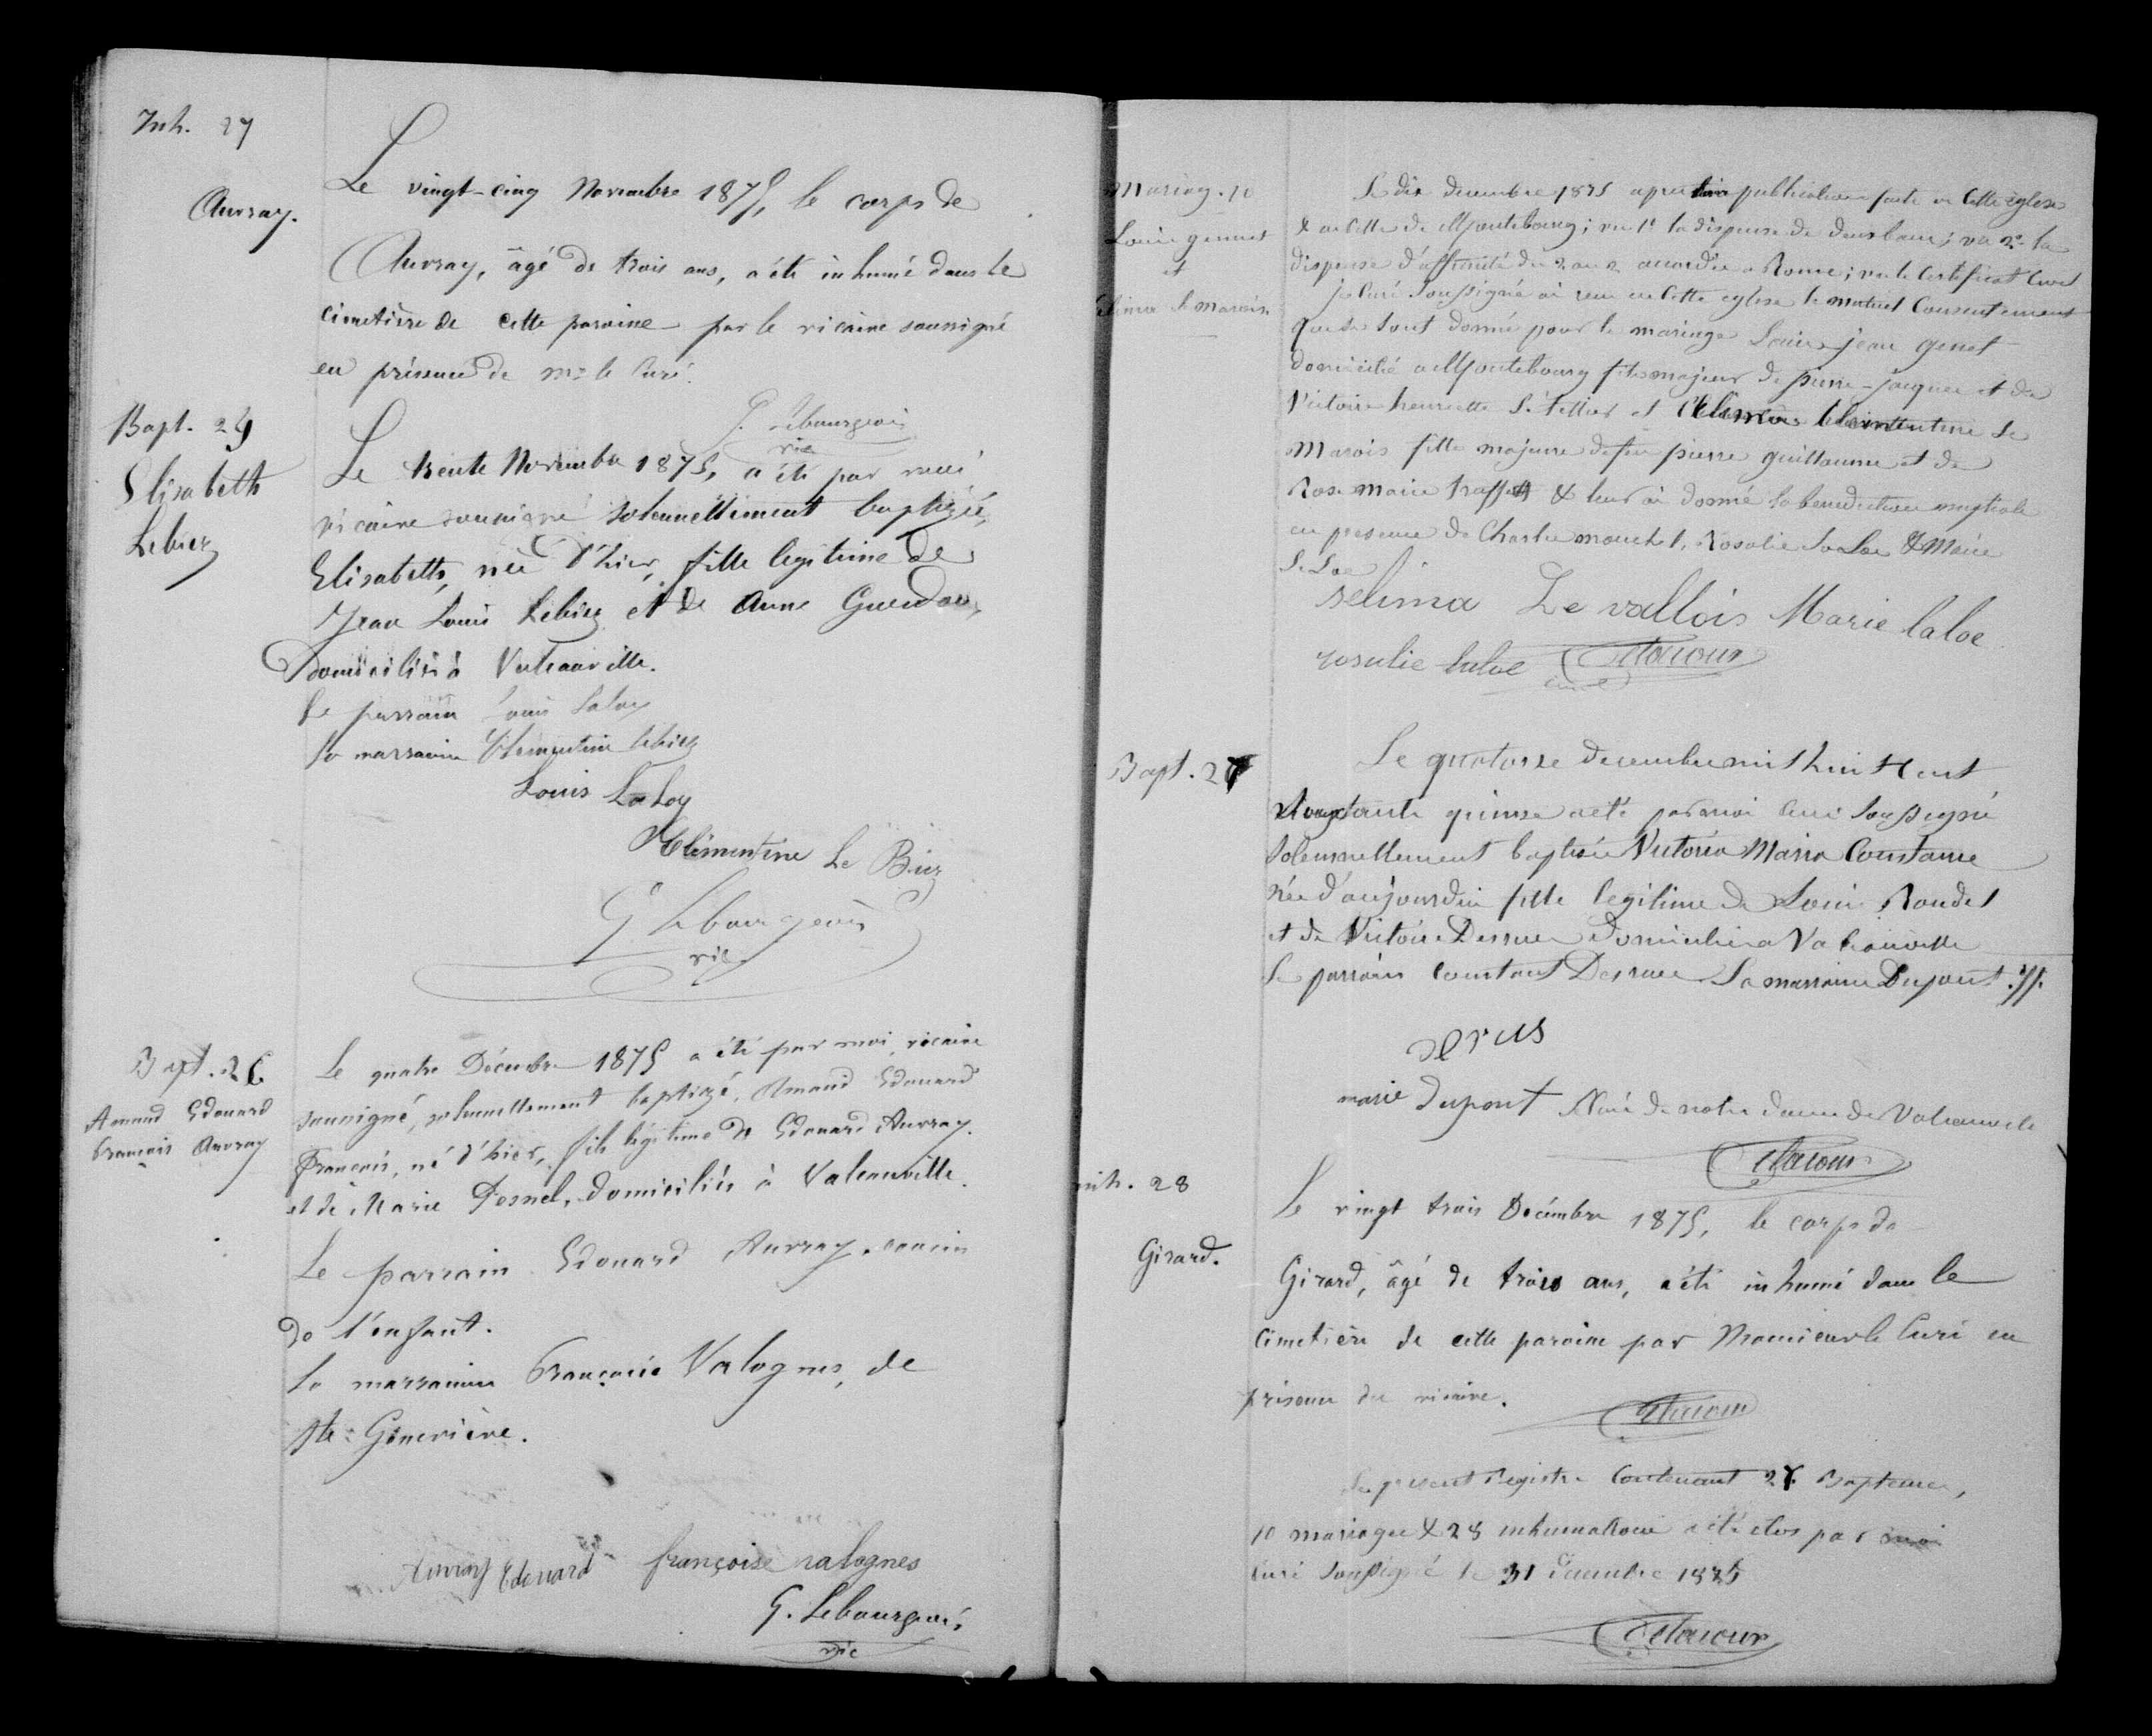 Inh. 27
Auvray.
Le vingt-cinq Novembre 1875, le corps de
Auvray, âgé de trois ans, a été inhumé dans le
cimetière de cette paroisse par le vicaire soussigné
en présence de Mr le Curé.
G. Lebourgeois
vic
Bapt. 25
Elisabeth
Lebiez
Le trente Novembre 1875, a été par moi
vicaire soussigné solennellement baptisée,
Elisabeth, née d'hier, fille légitime de
Jean Louis Lebiez et de Anne
domiciliés à Valcanville.
Le parrain Louis Laloy
La marraine Clémentine Lebiez
Louis Laloy
Clémentine Le Biez
G Lebourgeois
vic
Bapt. 26
Amand Edouard
François Auvray
Le quatre Décembre 1875 a été par moi, vicaire
soussigné, solennellement baptisé, Amand Edouard
François, né d'hier, fils légitime de Edouard Auvray
et de Marie Pesnel, domiciliés à Valcanville.
Le parrain Edouard Auvray, cousin
de l'enfant.
La marraine Françoise Valognes, de
Ste Geneviève.
Auvray Edouard françoise valognes
G. Lebourgeois
vic
Mariag. 10
Louis gennet
et
le marois
Le dix decembre 1875 apres publication faite en cette église
& en celle de Montebourg; vu 1º la dispense de deux bans; vu 2º la
dispense d'affinité du 2 au 2 accordée a Rome; vu le certificat civil
je curé soussigné ai recu en cette eglise le mutuel consentement
que se sont donné pour le mariage Louis jean genet
domicilié a Montebourg fils majeur de pierre-jacques et de
Victoire henriette le tellier et le
Marois fille majeure de feu pierre guillaume et de
Rose marie & leur ai donné la benediction nuptiale
en presence de Charles mouchel, Rosalie Laloe & Marie
La Loe
selima Le vallois Marie laloe
rosalie laloe
curé
Bapt. 27
Le quatorze decembre mil huit cent
soixante quinze a été par moi curé soussigné
solennellement baptisée Victoria Maria Constance
née d'aujourdui fille legitime de Louis Roudel
et de Victoire Desrue domiciliés a Valcanville
Le parrain Constant Desrue La marraine Dupont
derus
marie dupont Curé de notre dame de Valcanville
inh. 28
Girard.
Le vingt trois Décembre 1875, le corps de
Girard, âgé de trois ans, a été inhumé dans le
cimetière de cette paroisse par Monsieur le Curé en
présence du vicaire.
Le present Registre contenant 27 Baptemes,
10 mariages & 28 inhumations a été clos par moi
curé soussigné le 31 decembre 1875